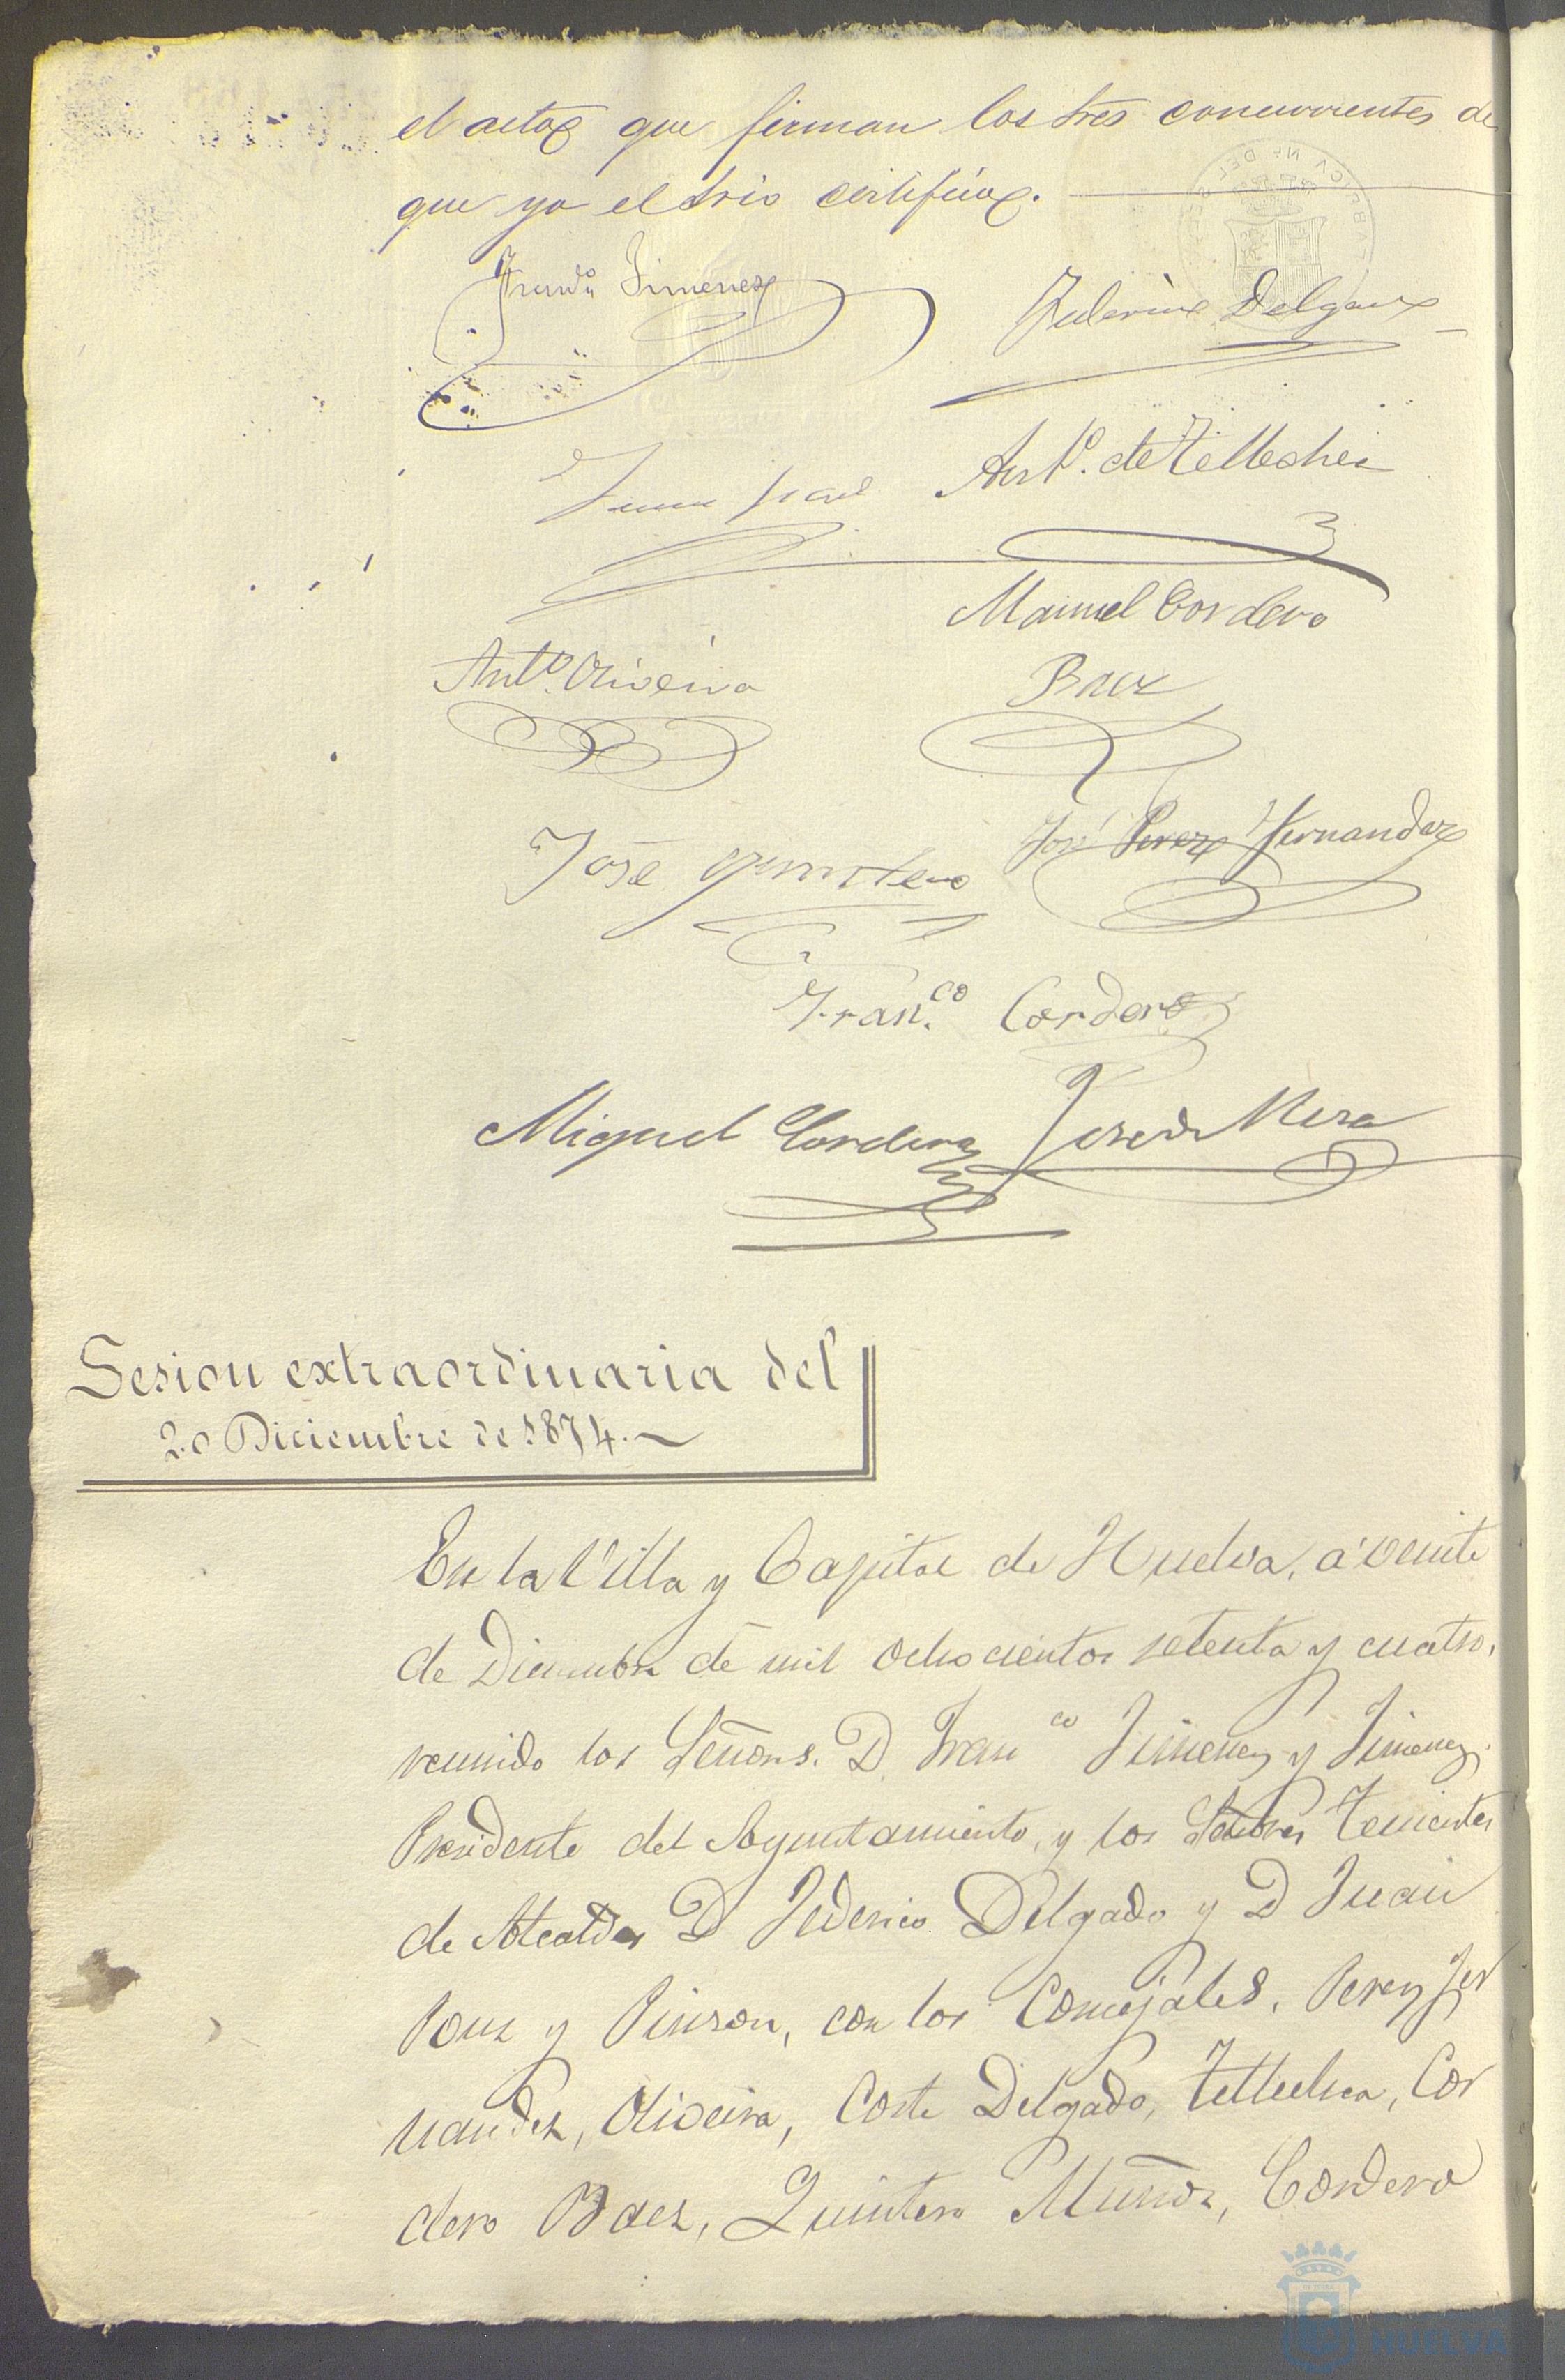 el acto que firman los Sres concurrentes de
que yo el Srio certifico.
Franco Jimenez
Federico Delgado
Anto. de Tellechea
Manuel Cordero
Anto. Oliveira
Baez
José Quintero
José Perez Hernandez
Fran.co Cordero
Miguel Cordero
José de Mesa
Sesion extraordinaria del
20 Diciembre de 1874.
En la Villa y Capital de Huelva, a veinte
de Diciembre de mil ochocientos setenta y cuatro,
reunido los Señores. D Franco Jimenez y Jimenez,
Presidente del Ayuntamiento, y los Señores Tenientes
de Alcaldes D Federico Delgado y D Juan
y Pinzon, con los Concejales, Perez Her
nandez, Oliveira, Corte Delgado, Tellechea, Cor
dero Baez, Quintero Muñoz, Cordero
HUELVA